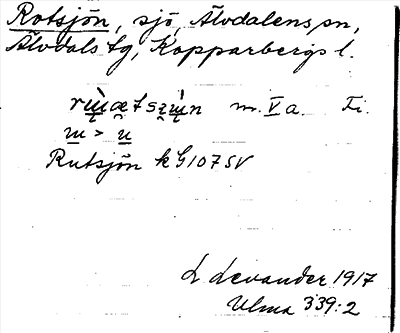 Rotsjön, sjö, Älvdalens sn,
Älvdals tg, Kopparbergs l.
m. V a. Fi.
Rutsjön k G107SV
L Levander 1917
Ulma 339:2